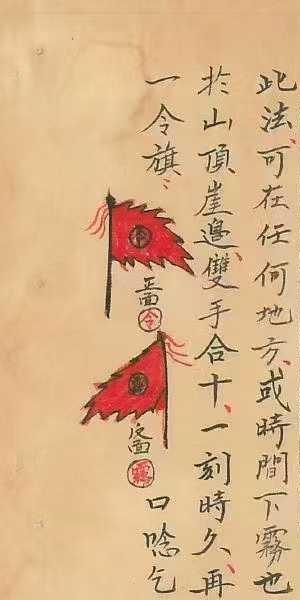 此法、可在任何地方、或時間下霧也
扵山頂崖邊、雙手合十、一刻時久、再
一令旗、
令
正面
令
反面
霧
口唸乞